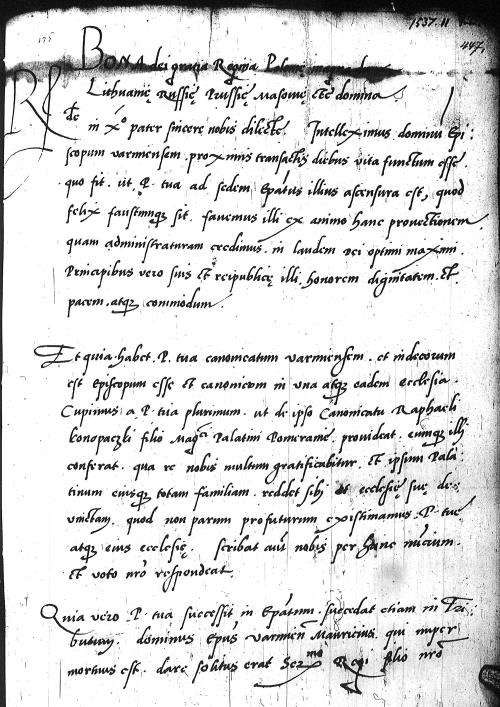 1537. 11
447
BONA dei gratia Regina Polonię magna d
Lithuanię Russię Prussię Masovię etc domina
Rde
in Xo pater sincere nobis dilecte. Intelleximus dominum Epi:
scopum varmensem. proximis transactis diebus vita functum esse.
quo fit. ut. P. tua ad sedem Epatus illius ascensura est, quod
felix faustumque sit. favemus illi ex animo hanc provectionem.
quam administraturam credimus. in laudem Dei optimi maximi.
Principibus vero suis et reipublicę illi. honorem dignitatem. et
pacem. atque commodum.
Et quia habet. P. tua canonicatum varmensem. et indecorum
est Episcopum esse et canonicum in una atque eadem ecclesia.
Cupimus a. P. tua plurimum. ut de ipso Canonicatu Raphaeli
konopaczki filio Magci Palatini Pomeranię. provideat. eumque illi
conferat. qua re nobis multum gratificabitur. Et ipsum Pala:
tinum eiusque totam familiam. reddet sibi et ecclesię suę de:
vinctam. quod non parum profuturum existimamus. P. tuę
atque eius ecclesię. scribat aut nobis per hunc nuncium.
et voto nro respondeat.
Quia vero. P. tua successit in Epatum. succedat etiam in Tri:
butum. dominus Epus varmien Mauricius, qui nuper
mortuus est. dare solitus erat Sermo Regi filio nro